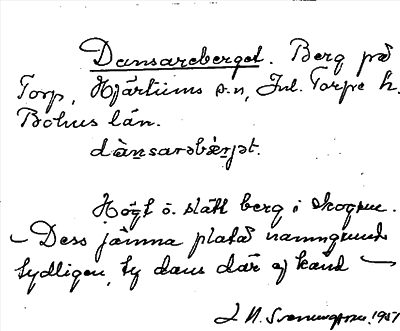 Dansareberget. Berg på
Torp, Hjärtums s:n, Inl. Torpe h.
Bohus län.
dànsarəbær̥jət.
Högt o. slätt berg i skogen.
– Dess jämna platå namngrund
tydligen, ty dans där ej känd –
J. N. Svenungsson. 1951